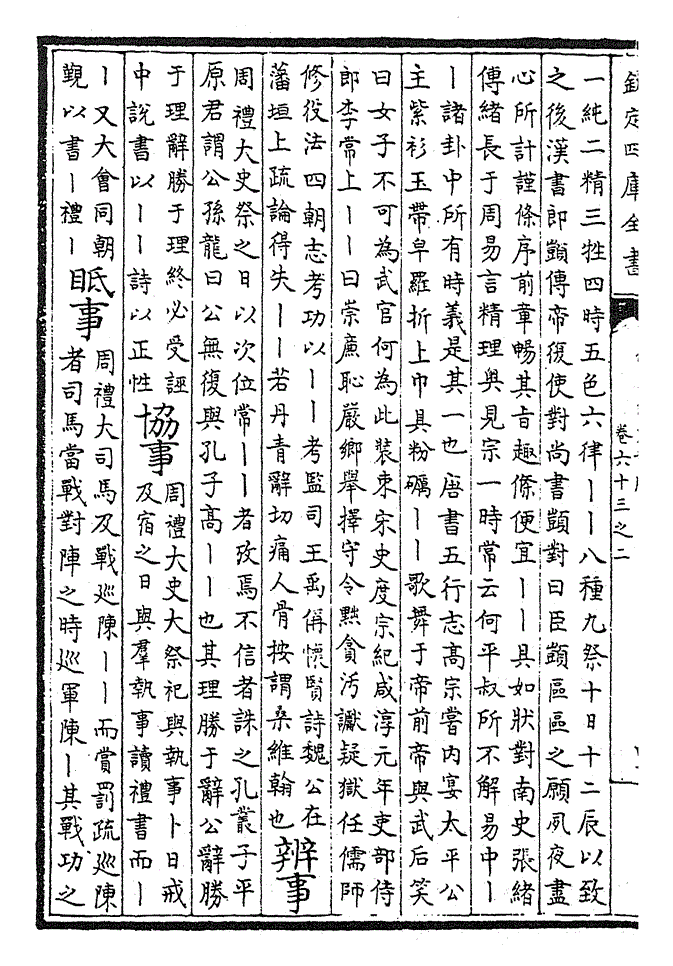 欽定四庫全書
卷六十三之二
一純二精三牲四時五色六律丨丨八種九祭十日十二辰以致
之後漢書郎顗傳帝復使對尚書顗對曰臣顗區區之願夙夜盡
心所計謹條序前章暢其旨趣條便宜丨丨具如狀對南史張緒
傳緒長于周易言精理奧見宗一時常云何平叔所不解易中丨
丨諸卦中所有時義是其一也唐書五行志高宗嘗内宴太平公
主紫衫玉帶皁羅折上巾具粉礪丨丨歌舞于帝前帝與武后笑
曰女子不可為武官何為此裝束宋史度宗紀咸淳元年吏部侍
郎李常上丨丨曰崇廉恥嚴鄉舉擇守令黜貪汚讞疑獄任儒師
修役法四朝志考功以丨丨考監司王禹偁懷賢詩魏公在
藩垣上疏論得失丨丨若丹青辭切痛人骨按謂桑維翰也
辨事
周禮大史祭之日以次位常丨丨者攷焉不信者誅之孔叢子平
原君謂公孫龍曰公無復與孔子高丨丨也其理勝于辭公辭勝
于理辭勝于理終必受誣
中說書以丨丨詩以正性
協事
周禮大史大祭祀與執事卜日戒
及宿之日與羣執事讀禮書而丨
丨又大會同朝
覲以書丨禮丨
眂事
周禮大司馬及戰巡陳丨丨而賞罰疏巡陳
者司馬當戰對陣之時巡軍陳丨其戰功之